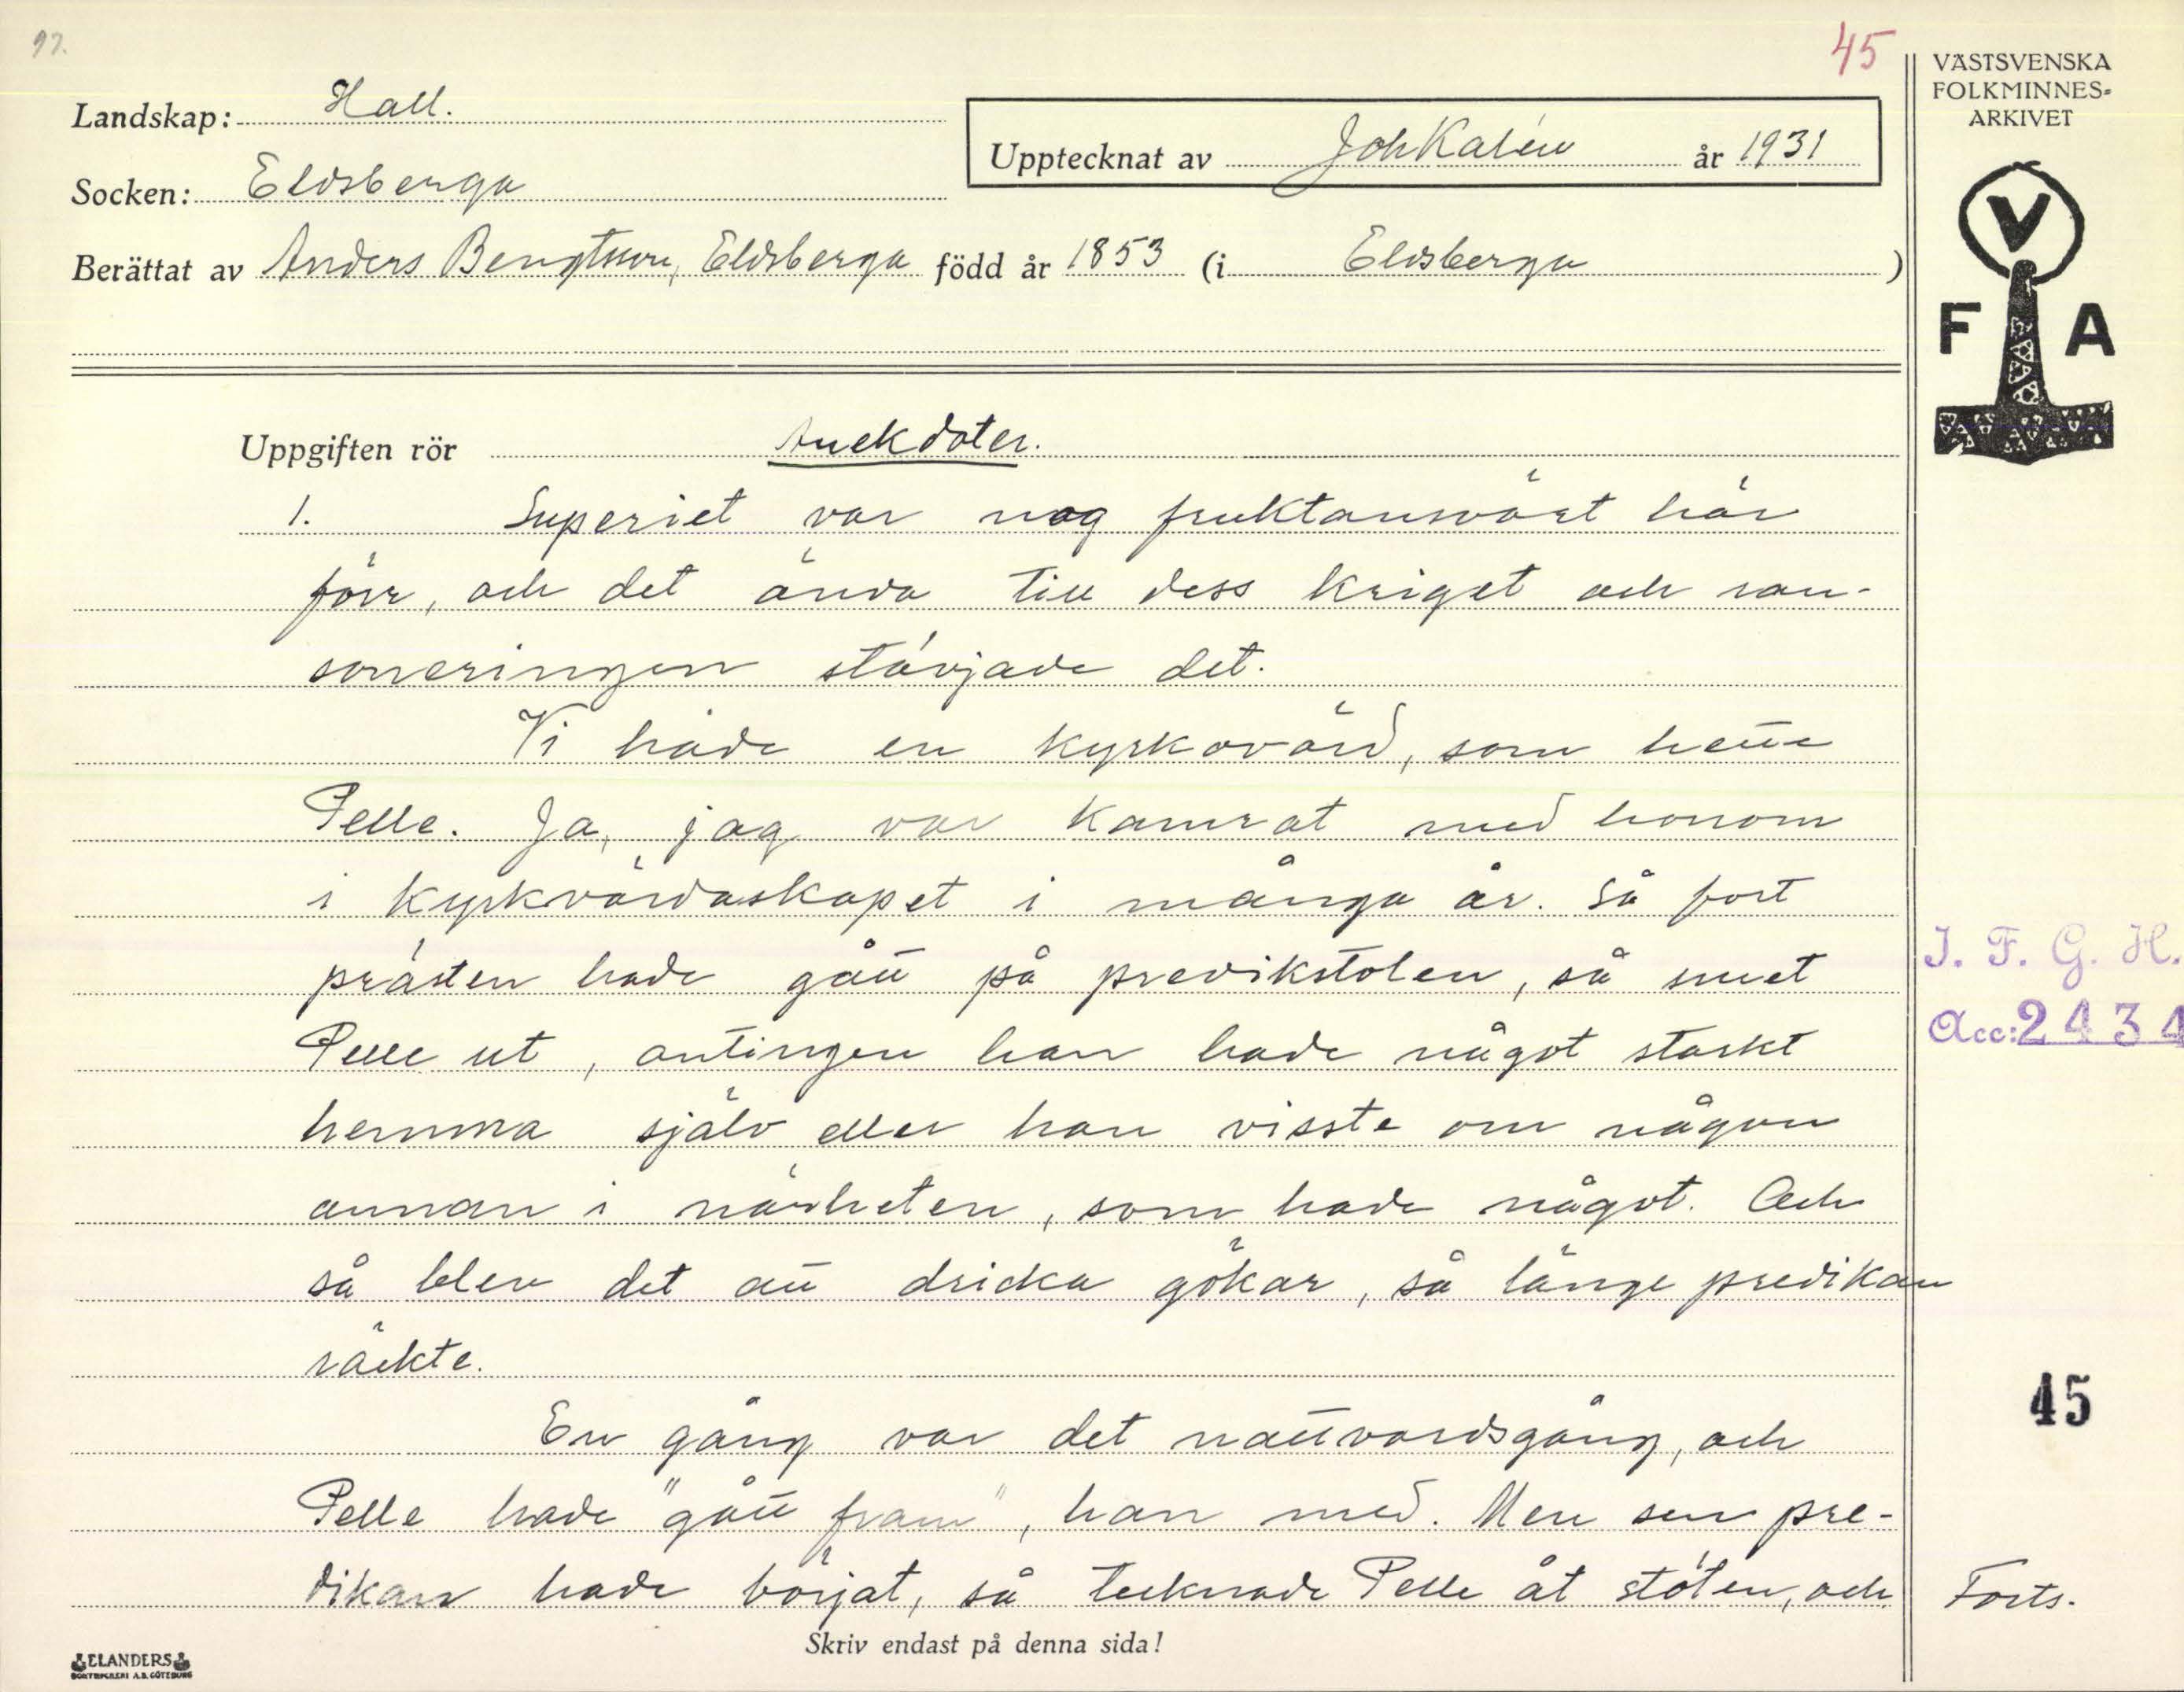 97.
45
VÄSTSVENSKA
FOLKMINNES-
ARKIVET
Landskap: Hall.
Upptecknat av Joh Kalén år 1931
Socken: Eldsberga
Berättat av Anders Bengtsson, Eldsberga född år 1853 (i Eldsberga)
V
F A
Uppgiften rör Anekdoter.
1. Superiet var nog fruktansvärt här
förr, och det ända till dess kriget och ran-
soneringen stävjade det.
Vi hade en kyrkovärd, som hette
Pelle. Ja, jag var kamrat med honom
i kyrkvärdaskapet i många år. Så fort
prästen hade gått på predikstolen, så smet
Pelle ut, antingen han hade något starkt
hemma själv eller han visste om någon
annan i närheten, som hade något. Och
så blev det att dricka gökar, så länge predikan
räckte.
En gång var det nattvardsgång, och
Pelle hade "gått fram", han med. Men sen pre-
dikan hade börjat, så tecknade Pelle åt stöten, och
I. F. G. H.
Acc: 2434
45
Forts.
Skriv endast på denna sida!
ELANDERS
BOKTRYCKERI A.B. GÖTEBORG